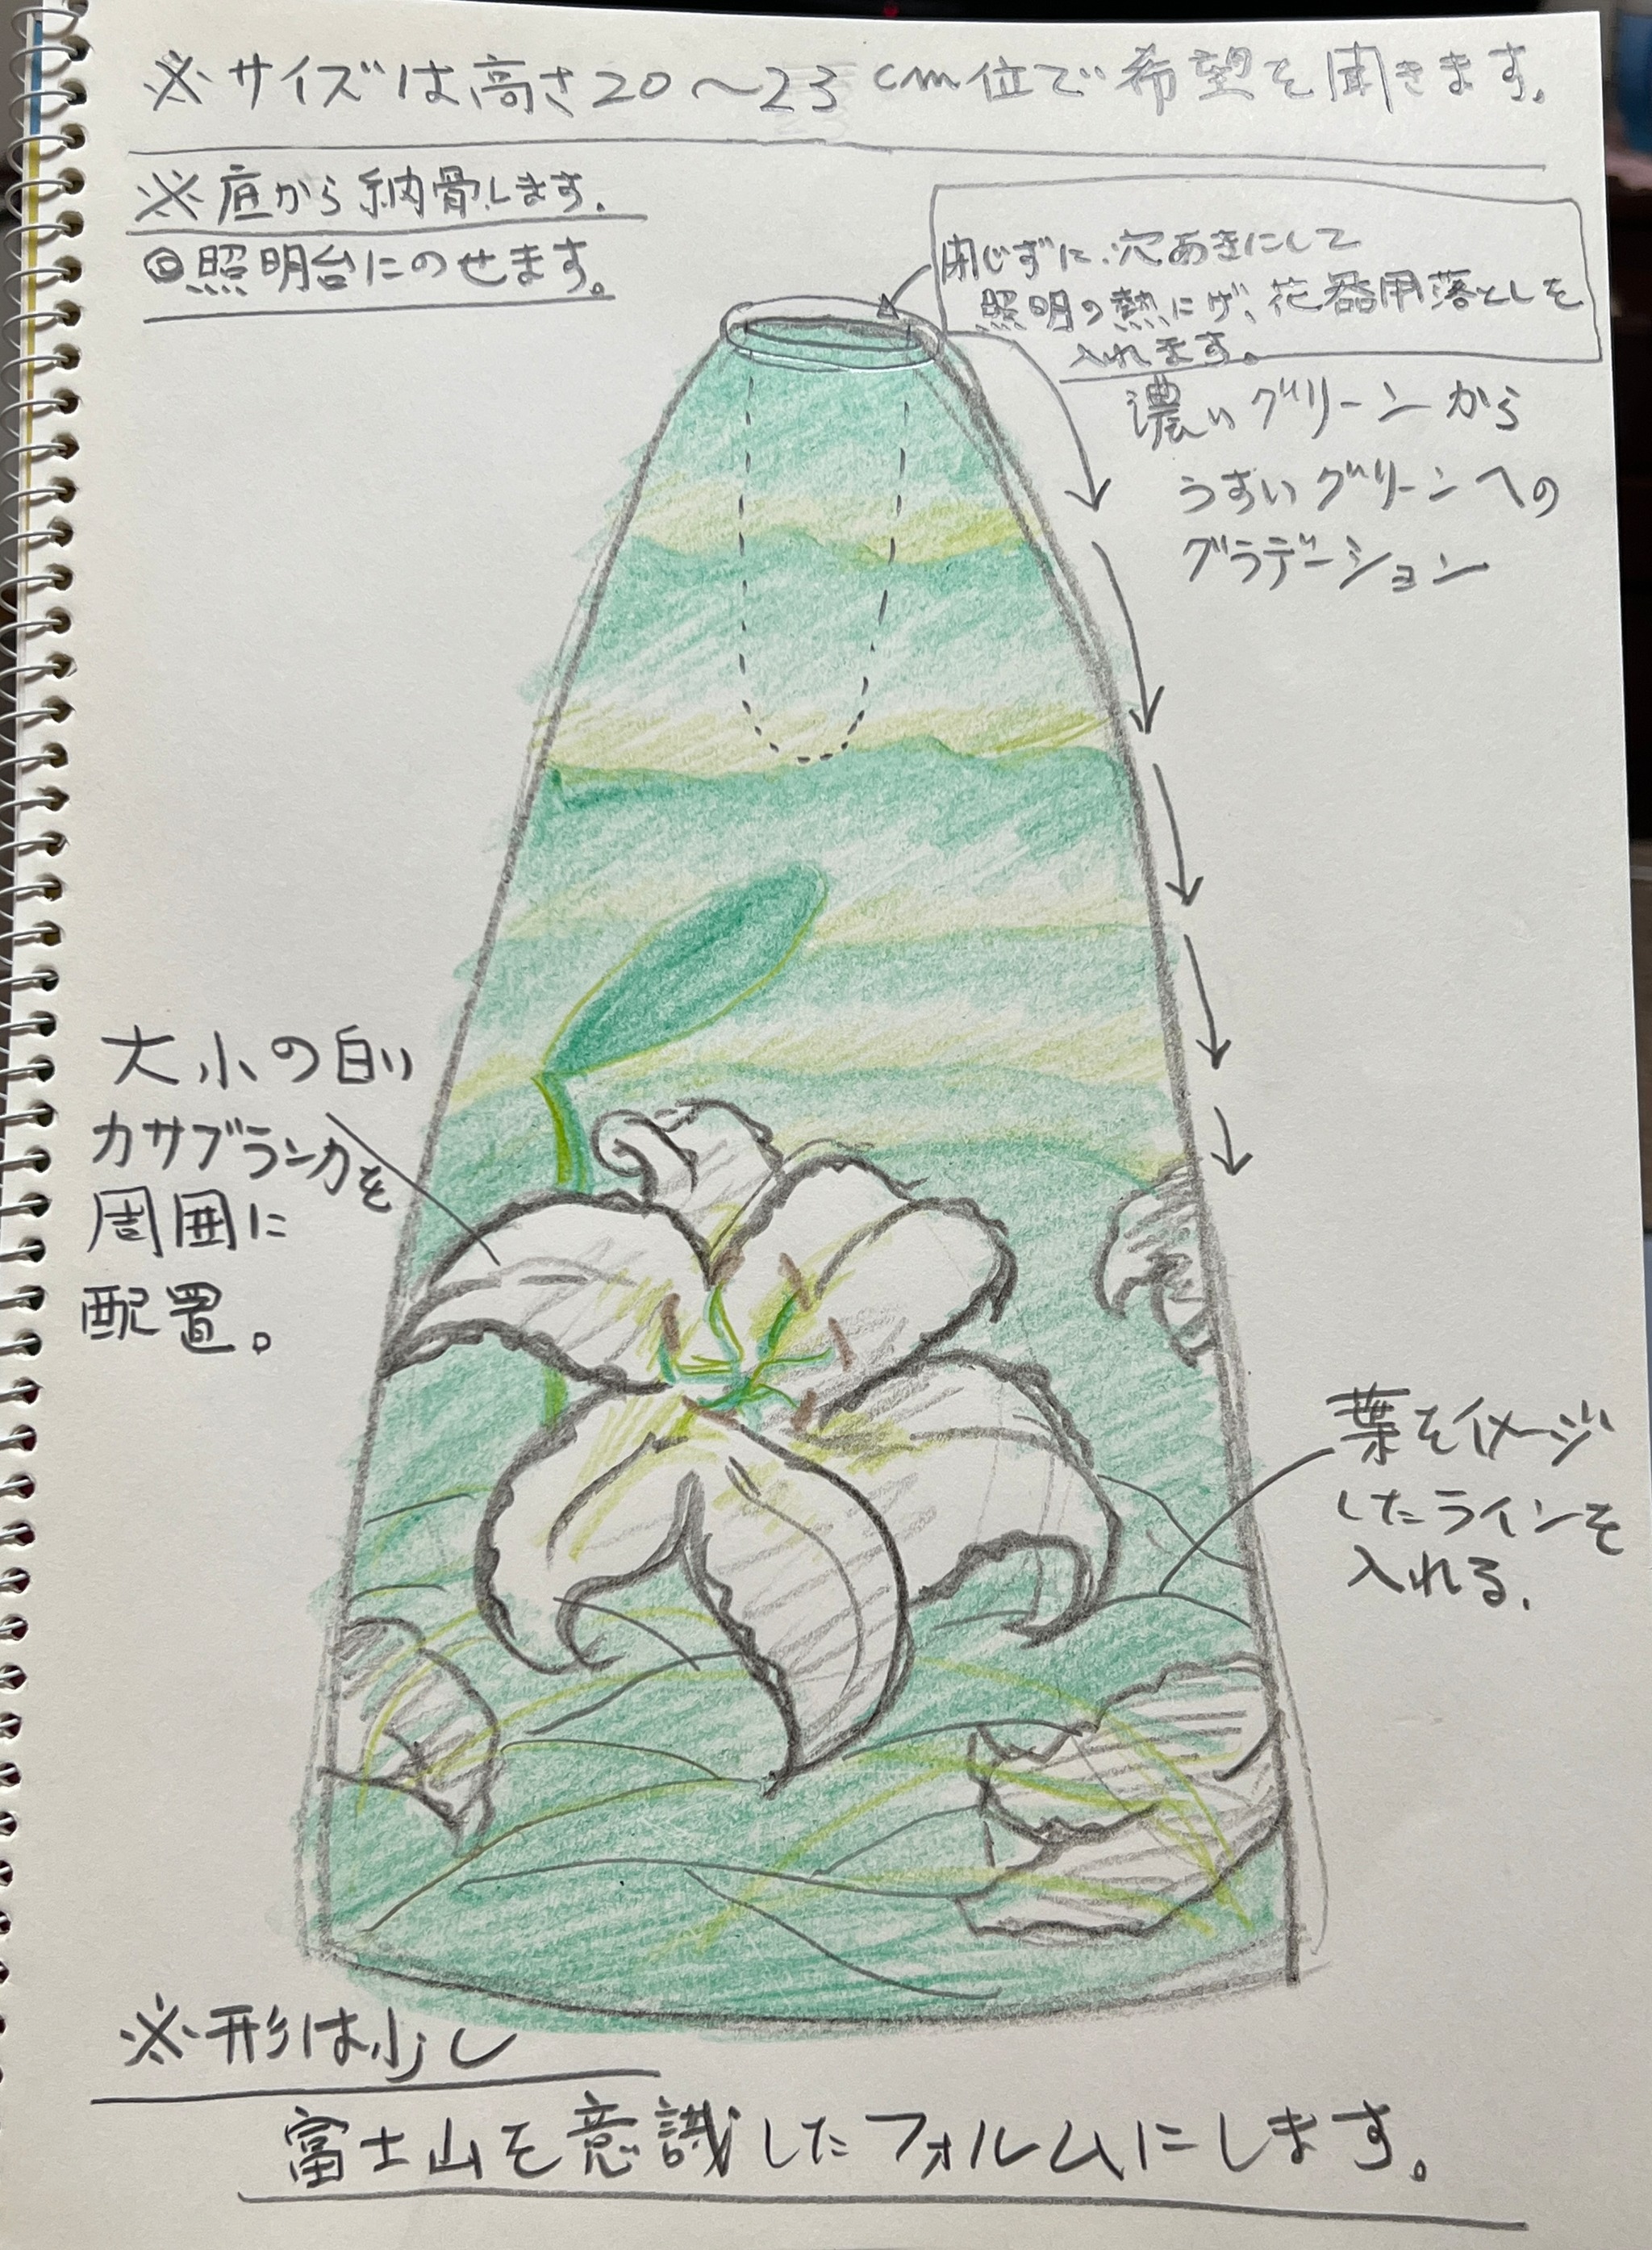 ※サイズは高さ20～23cm位で希望を聞きます。
※底から納骨します。
◎照明台にのせます。
閉じずに、穴あきにして
照明の熱にげ、花器用落としを
入れます。
濃いグリーンから
うすいグリーンへの
グラデーション
大小の白い
カサブランカを
周囲に
配置。
葉をイメージ
したラインを
入れる.
※形は少し
富士山を意識したフォルムにします。